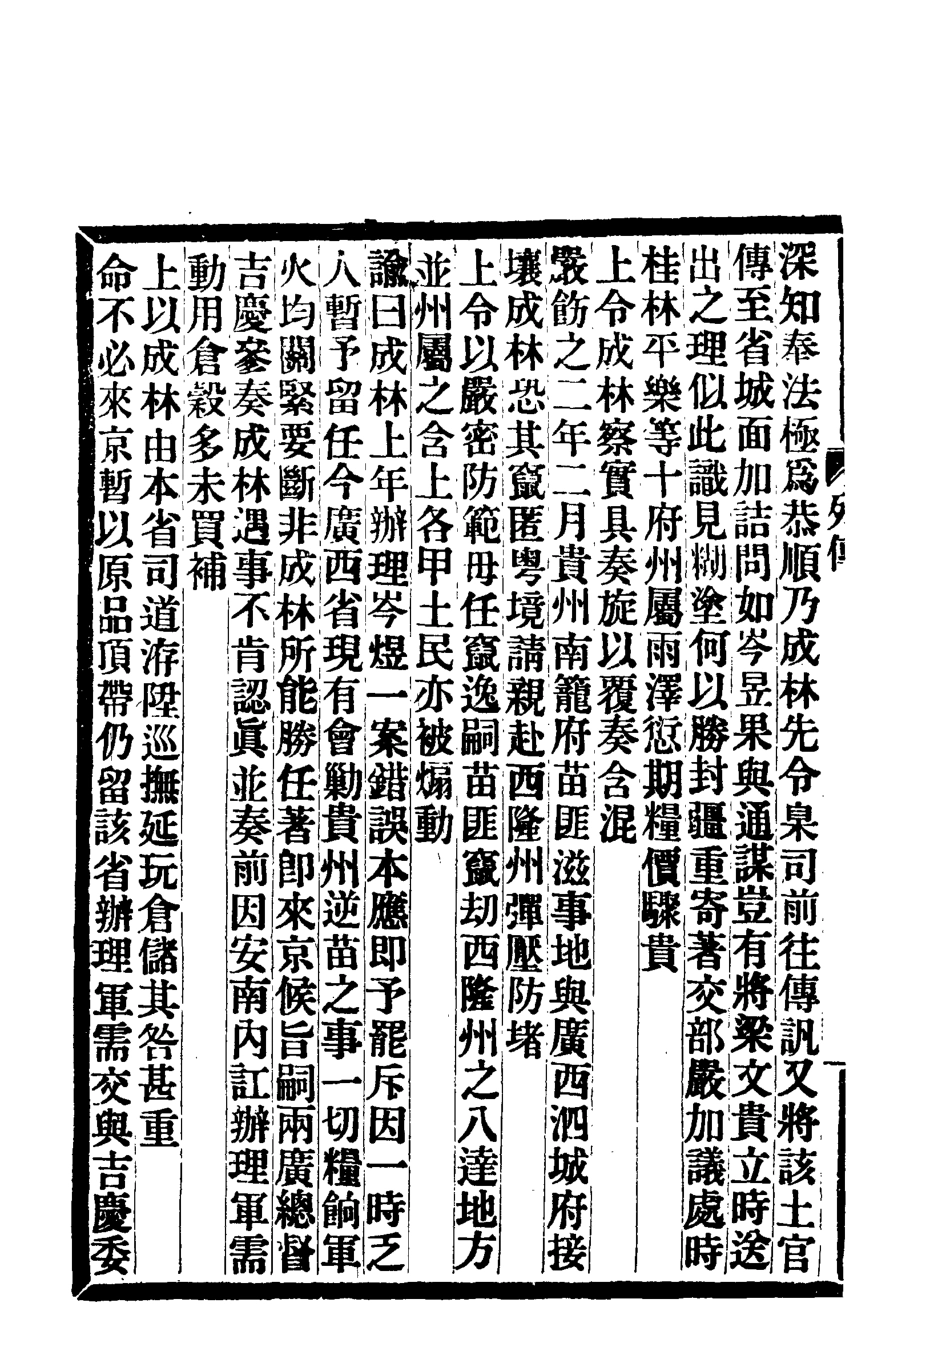 列傳
深知奉法極爲恭順乃成林先令臬司前往傳訊又將該土官
傳至省城面加詰問如岑昱果與通謀豈有將梁文貴立時送
出之理似此識見糊塗何以勝封疆重寄著交部嚴加議處時
桂林平樂等十府州屬雨澤愆期糧價驟貴
上令成林察實具奏旋以覆奏含混
嚴飭之二年二月貴州南籠府苗匪滋事地與廣西泗城府接
壤成林恐其竄匿粵境請親赴西隆州彈壓防堵
上令以嚴密防範毋任竄逸嗣苗匪竄刦西隆州之八達地方
並州屬之含上各甲土民亦被煽動
諭曰成林上年辦理岑煜一案錯誤本應即予罷斥因一時乏
人暫予留任今廣西省現有會勦貴州逆苗之事一切糧餉軍
火均關緊要斷非成林所能勝任著卽來京候旨嗣兩廣總督
吉慶叅奏成林遇事不肯認眞並奏前因安南內訌辦理軍需
動用倉穀多未買補
上以成林由本省司道洊陞巡撫延玩倉儲其咎甚重
命不必來京暫以原品頂帶仍留該省辦理軍需交與吉慶委